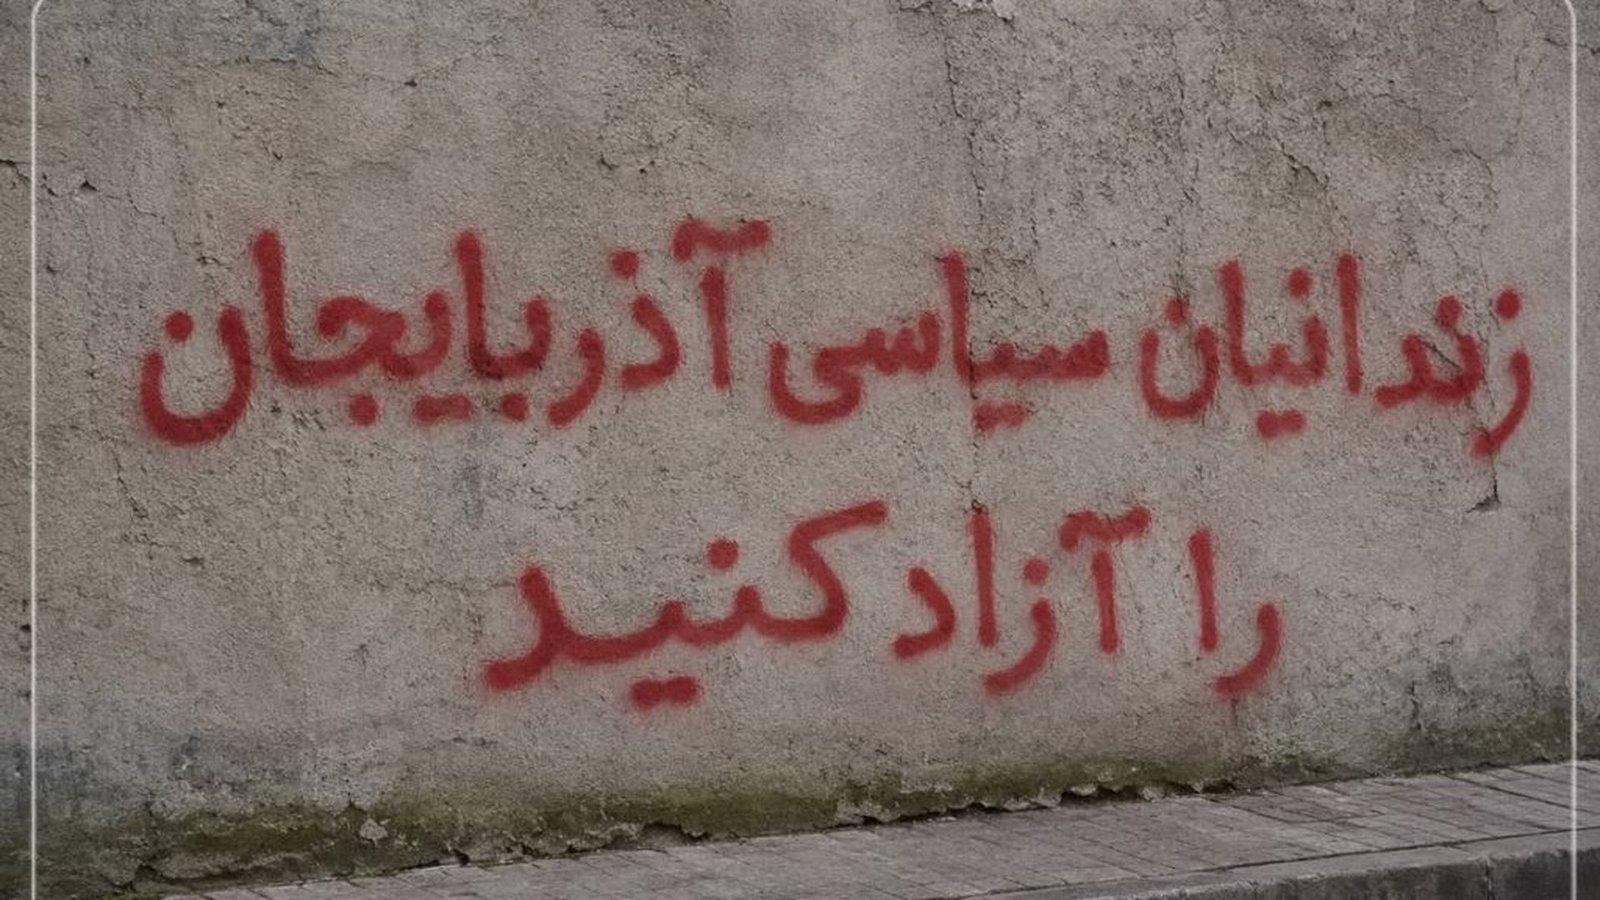 زندانیان سیاسی آذربایجان
را آزاد کنید